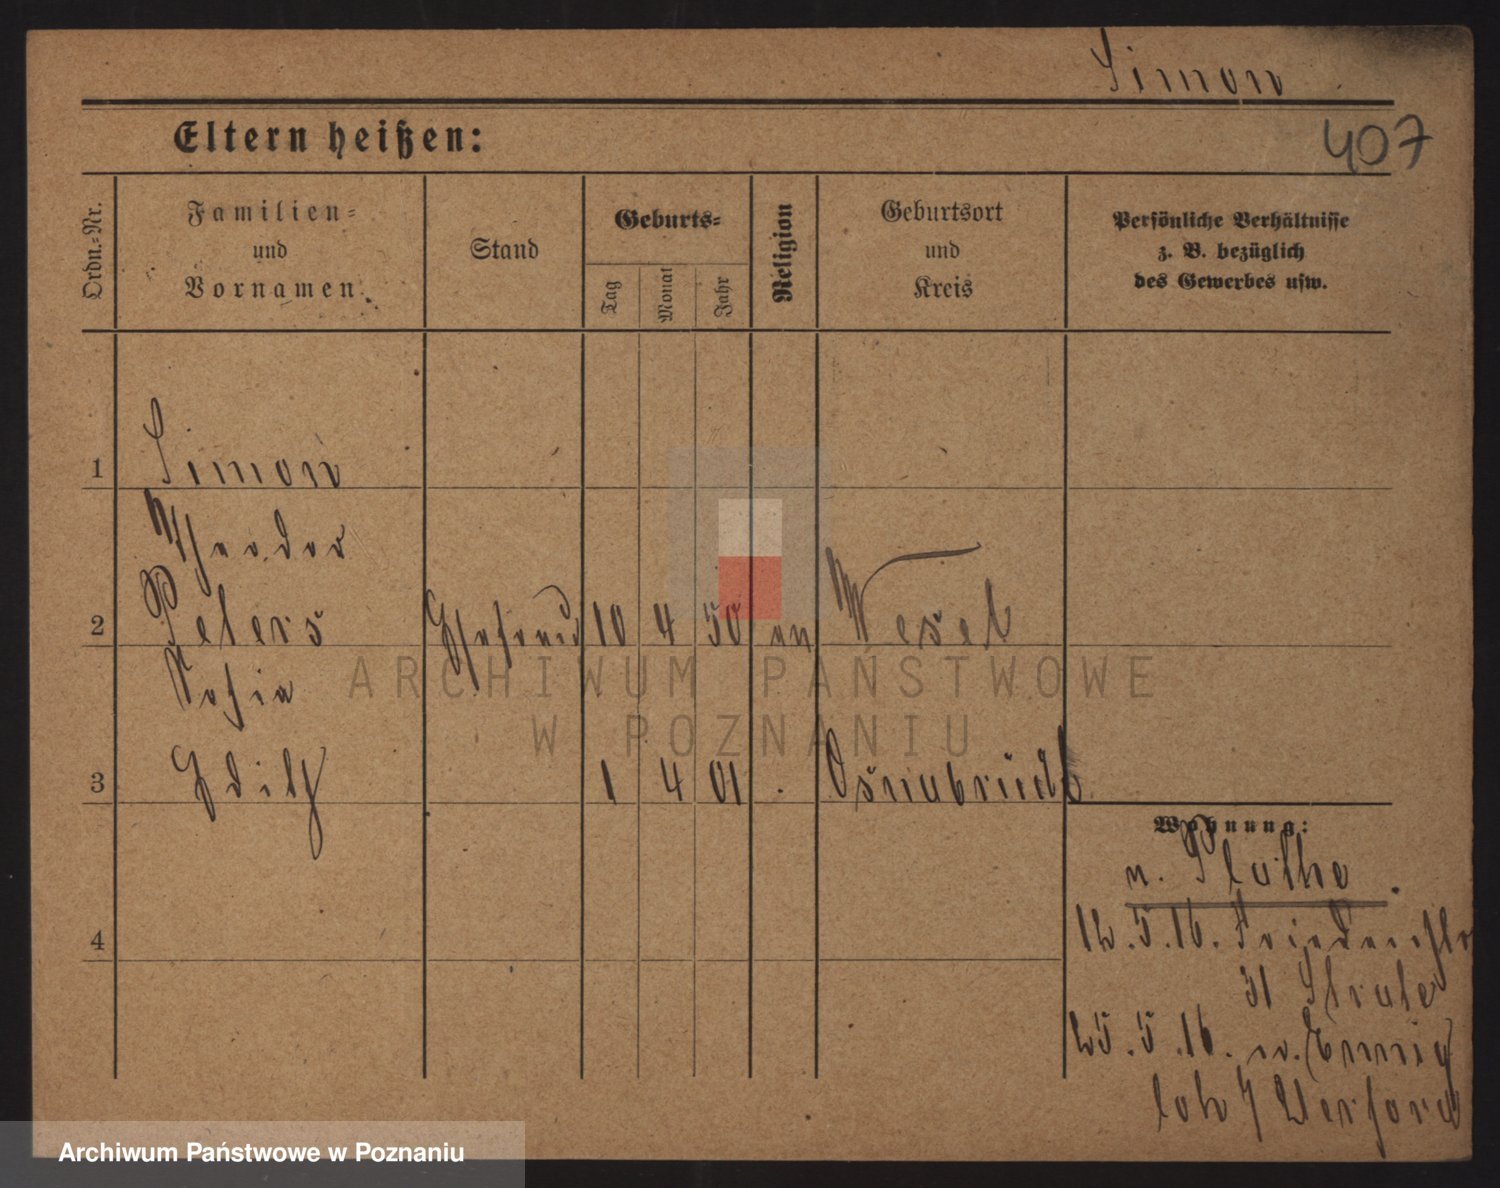 Simon
407
Eltern heißen:
Ordn.-Nr.
Familien-
und
Vornamen.
Stand
Geburts-
Tag
Monat
Jahr
Religion
Geburtsort
und
Kreis
Persönliche Verhältnisse
z. B. bezüglich
des Gewerbes usw.
1 Simon
Theodor
2 Peters 10 4 50 Wesel
Sofia
3 Edith 1 4 01 Osnabrück
4
Wohnung:
n. Plathe
12.5.16.
31
25.5.16. n.
Archiwum Państwowe
w Poznaniu
Archiwum Państwowe w Poznaniu